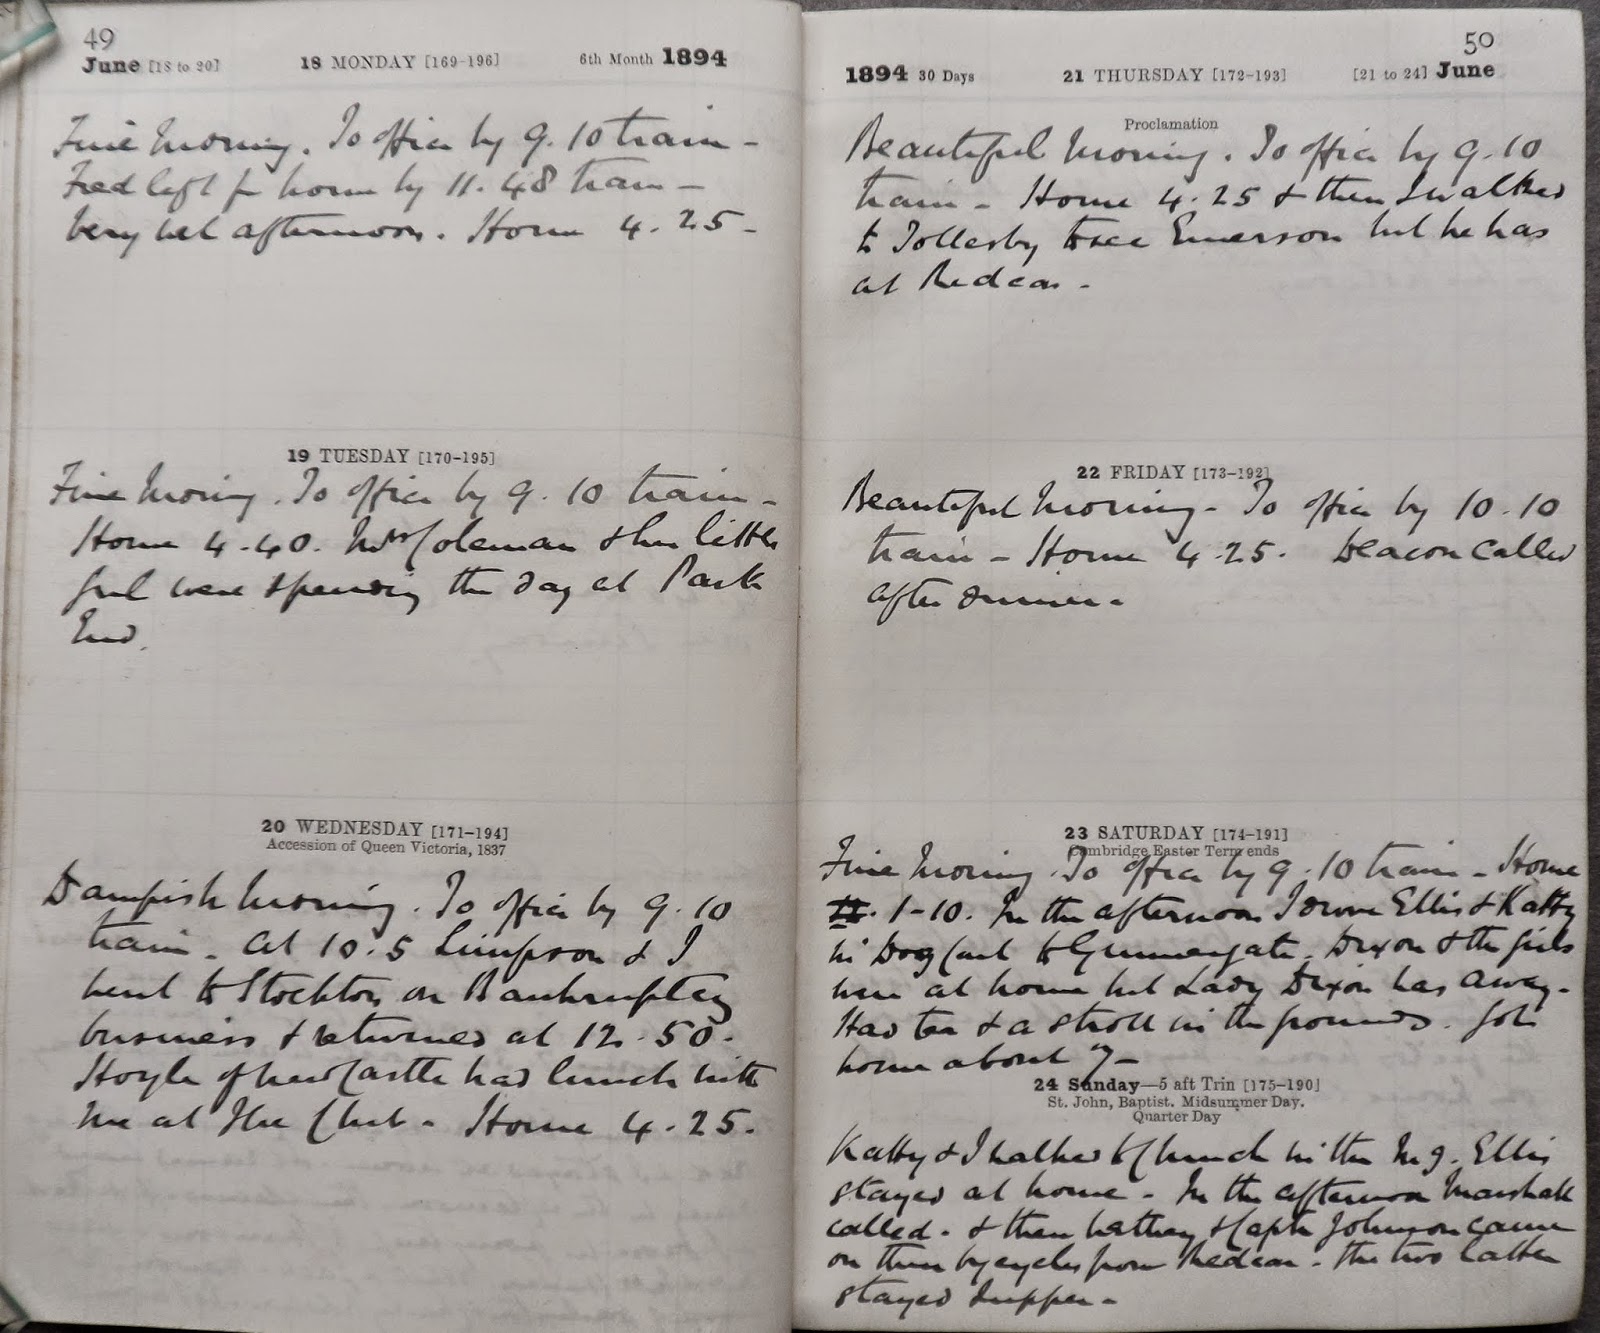 49
June [18 to 20] 18 MONDAY [169-196] 6th Month 1894
Fine Morning. To office by 9.10 train -
Fred left for home by 11.48 train -
Very wet afternoon. Home 4.25 -
19 TUESDAY [170-195]
Fine Morning. To office by 9.10 train -
Home 4.40. Mrs Coleman & her little
girl were spending the day at Park
End.
20 WEDNESDAY [171-194]
Accession of Queen Victoria, 1837
Dampish Morning. To office by 9.10
train. At 10.5 Simpson & I
went to Stockton on Bankruptcy
business & returned at 12.50.
Hoyle of Newcastle had lunch with
me at The Club - Home 4.25.
50
1894 30 Days 21 THURSDAY [172-193] [21 to 24] June
Proclamation
Beautiful Morning. To office by 9.10
train - Home 4.25 & then I walked
to Tollesby to see Emerson but he was
at Redcar -
22 FRIDAY [173-192]
Beautiful Morning - To office by 10.10
train - Home 4.25. Deacon called
after dinner -
23 SATURDAY [174-191]
Cambridge Easter Term ends
Fine Morning. To office by 9.10 train - Home
1-10. In the afternoon I drove Ellis & Katty
in Dog Cart to Gunnergate. Dixon & the girls
were at home but Lady Dixon was away -
Had tea & a stroll in the grounds. Got
home about 7 -
24 Sunday—5 aft Trin [175-190]
St. John, Baptist. Midsummer Day.
Quarter Day
Katty & I walked to Church in the Mg. Ellis
stayed at home - In the afternoon Marshall
called - & then & Capt Johnson came
on their bycycles from Redcar - The two latter
stayed supper -